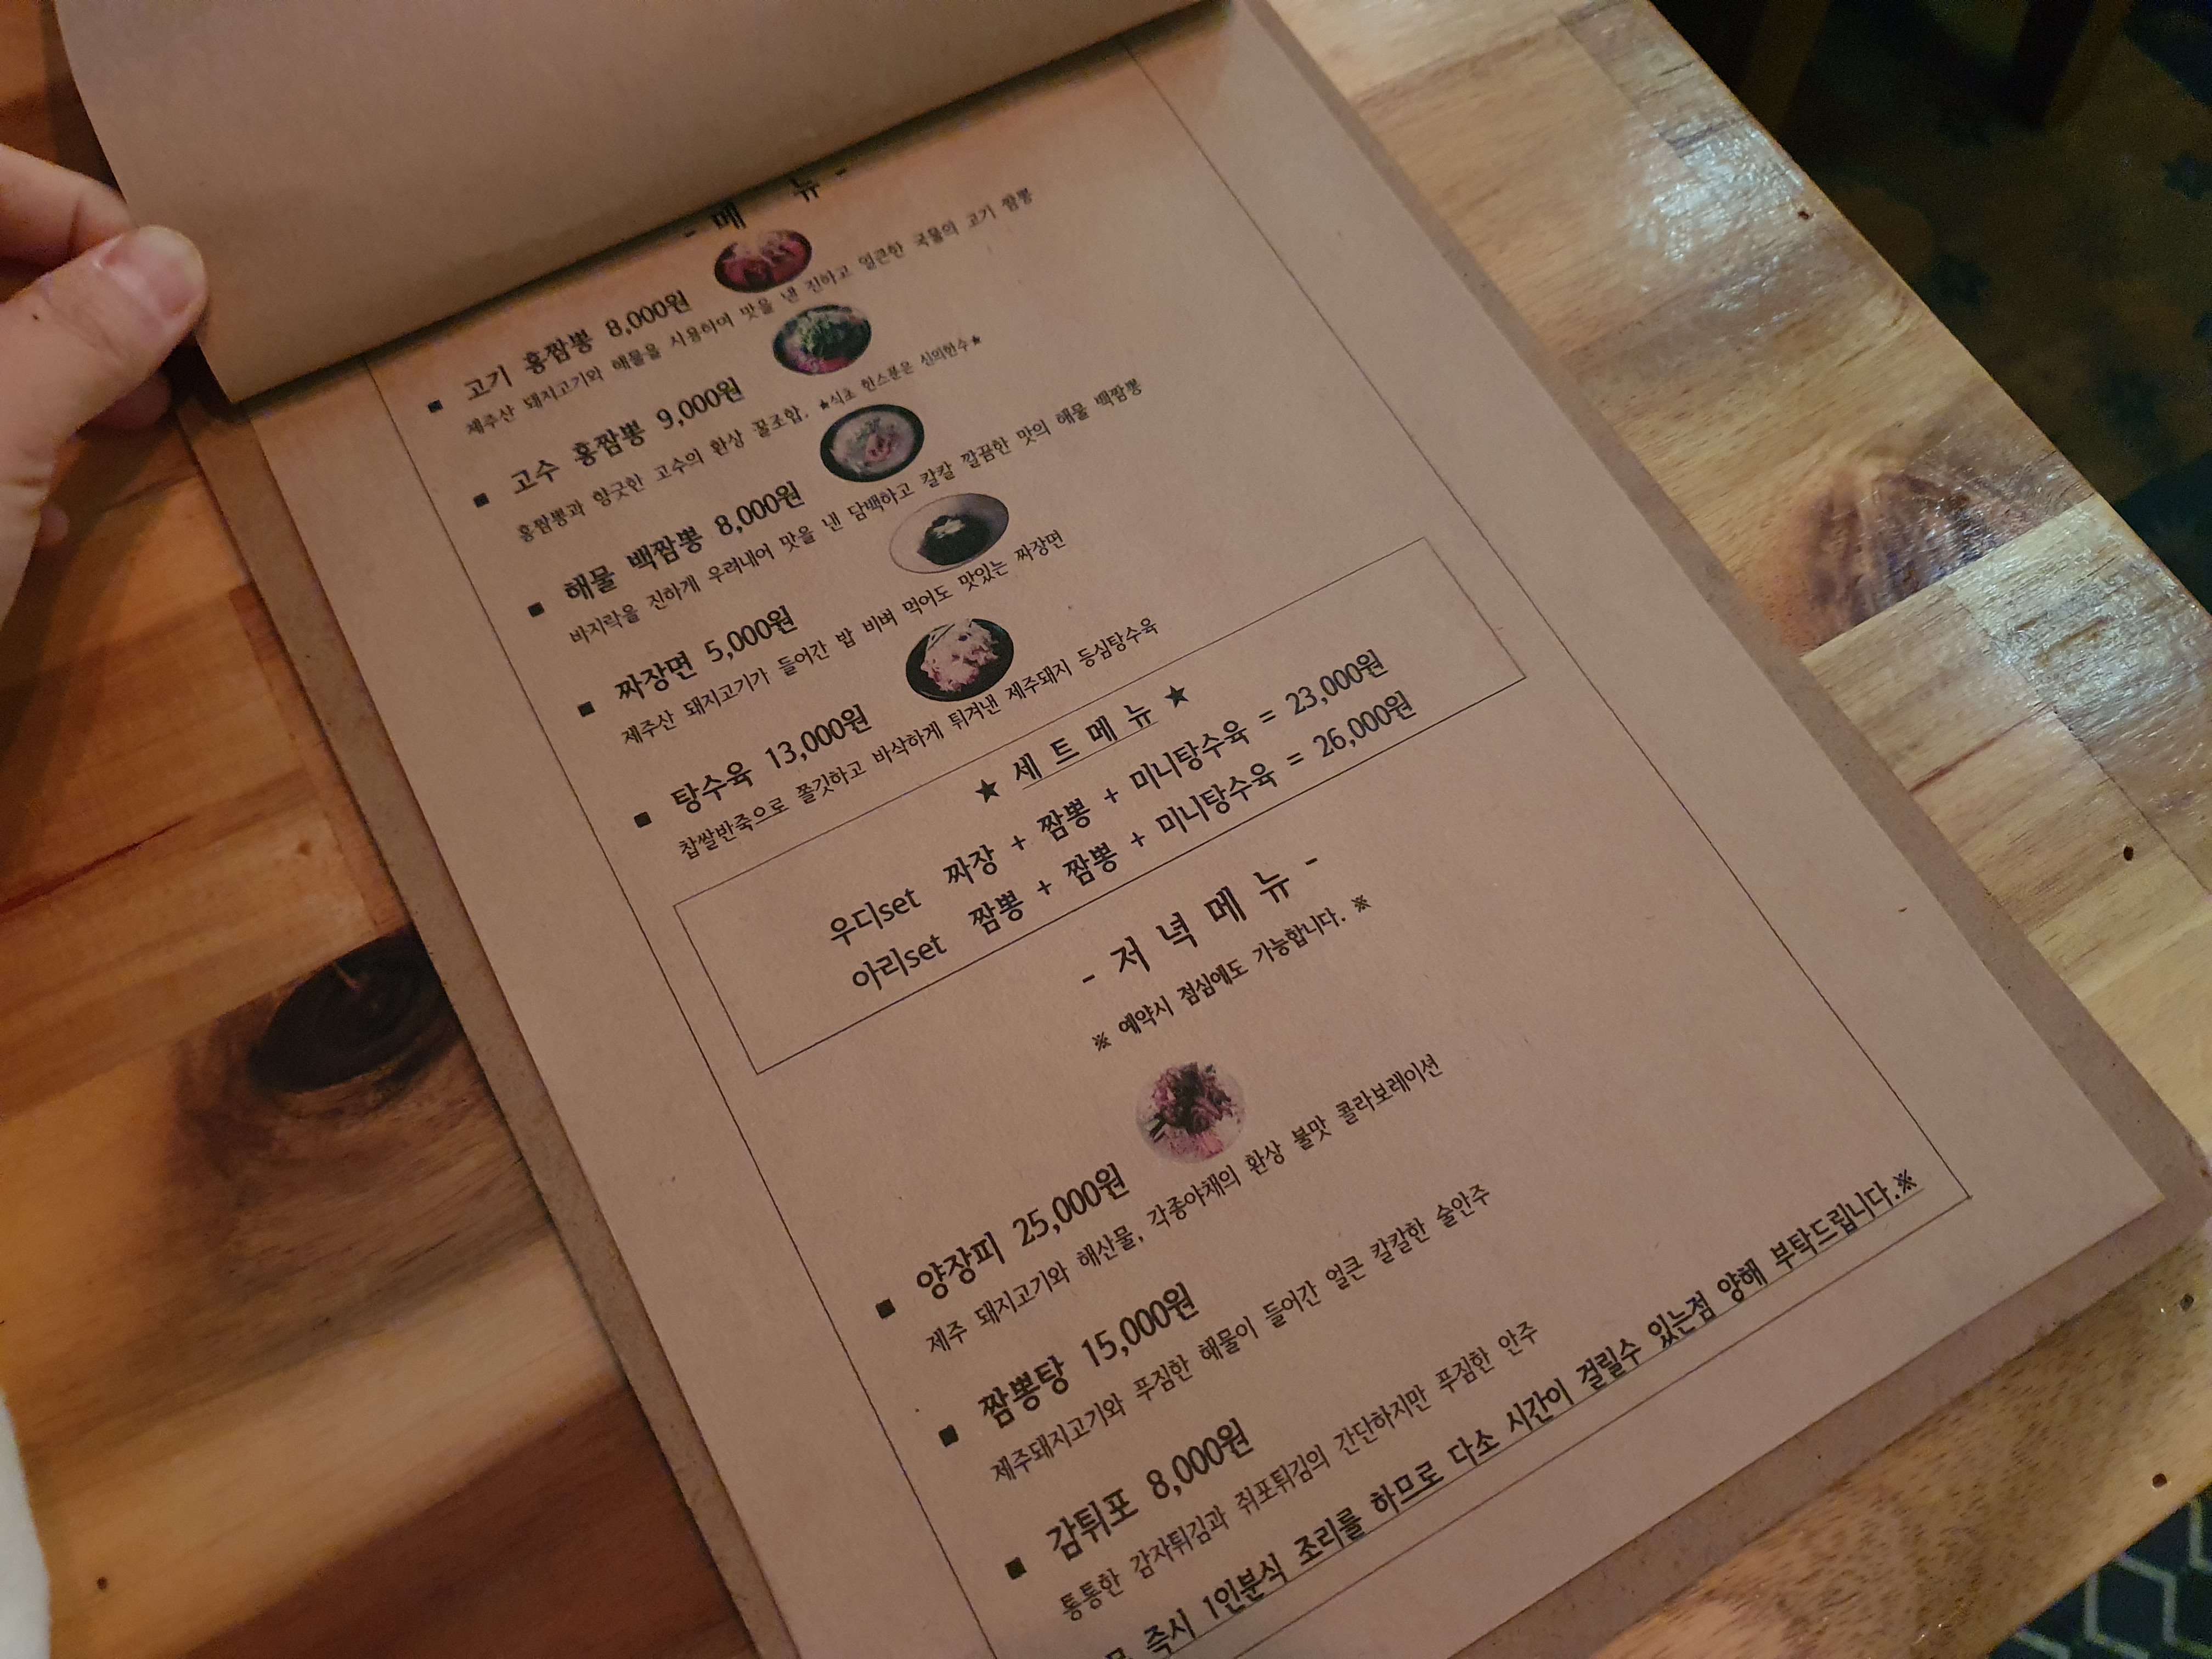 - 메 뉴 -
■ 고기 홍짬뽕 8,000원
제주산 돼지고기와 해물을 사용하여 맛을 낸 진하고 얼큰한 국물의 고기 짬뽕
■ 고수 홍짬뽕 9,000원
홍짬뽕과 향긋한 고수의 환상 꿀조합. ★식초 한스푼은 신의한수★
■ 해물 백짬뽕 8,000원
바지락을 진하게 우려내어 맛을 낸 담백하고 칼칼 깔끔한 맛의 해물 백짬뽕
■ 짜장면 5,000원
제주산 돼지고기가 들어간 밥 비벼 먹어도 맛있는 짜장면
■ 탕수육 13,000원
찹쌀반죽으로 쫄깃하고 바삭하게 튀겨낸 제주돼지 등심탕수육
★ 세 트 메 뉴 ★
우디set 짜장 + 짬뽕 + 미니탕수육 = 23,000원
아리set 짬뽕 + 짬뽕 + 미니탕수육 = 26,000원
- 저 녁 메 뉴 -
※ 예약시 점심에도 가능합니다. ※
■ 양장피 25,000원
제주 돼지고기와 해산물, 각종야채의 환상 불맛 콜라보레이션
■ 짬뽕탕 15,000원
제주돼지고기와 푸짐한 해물이 들어간 얼큰 칼칼한 술안주
■ 감튀포 8,000원
통통한 감자튀김과 쥐포튀김의 간단하지만 푸짐한 안주
즉시 1인분식 조리를 하므로 다소 시간이 걸릴수 있는점 양해 부탁드립니다.※